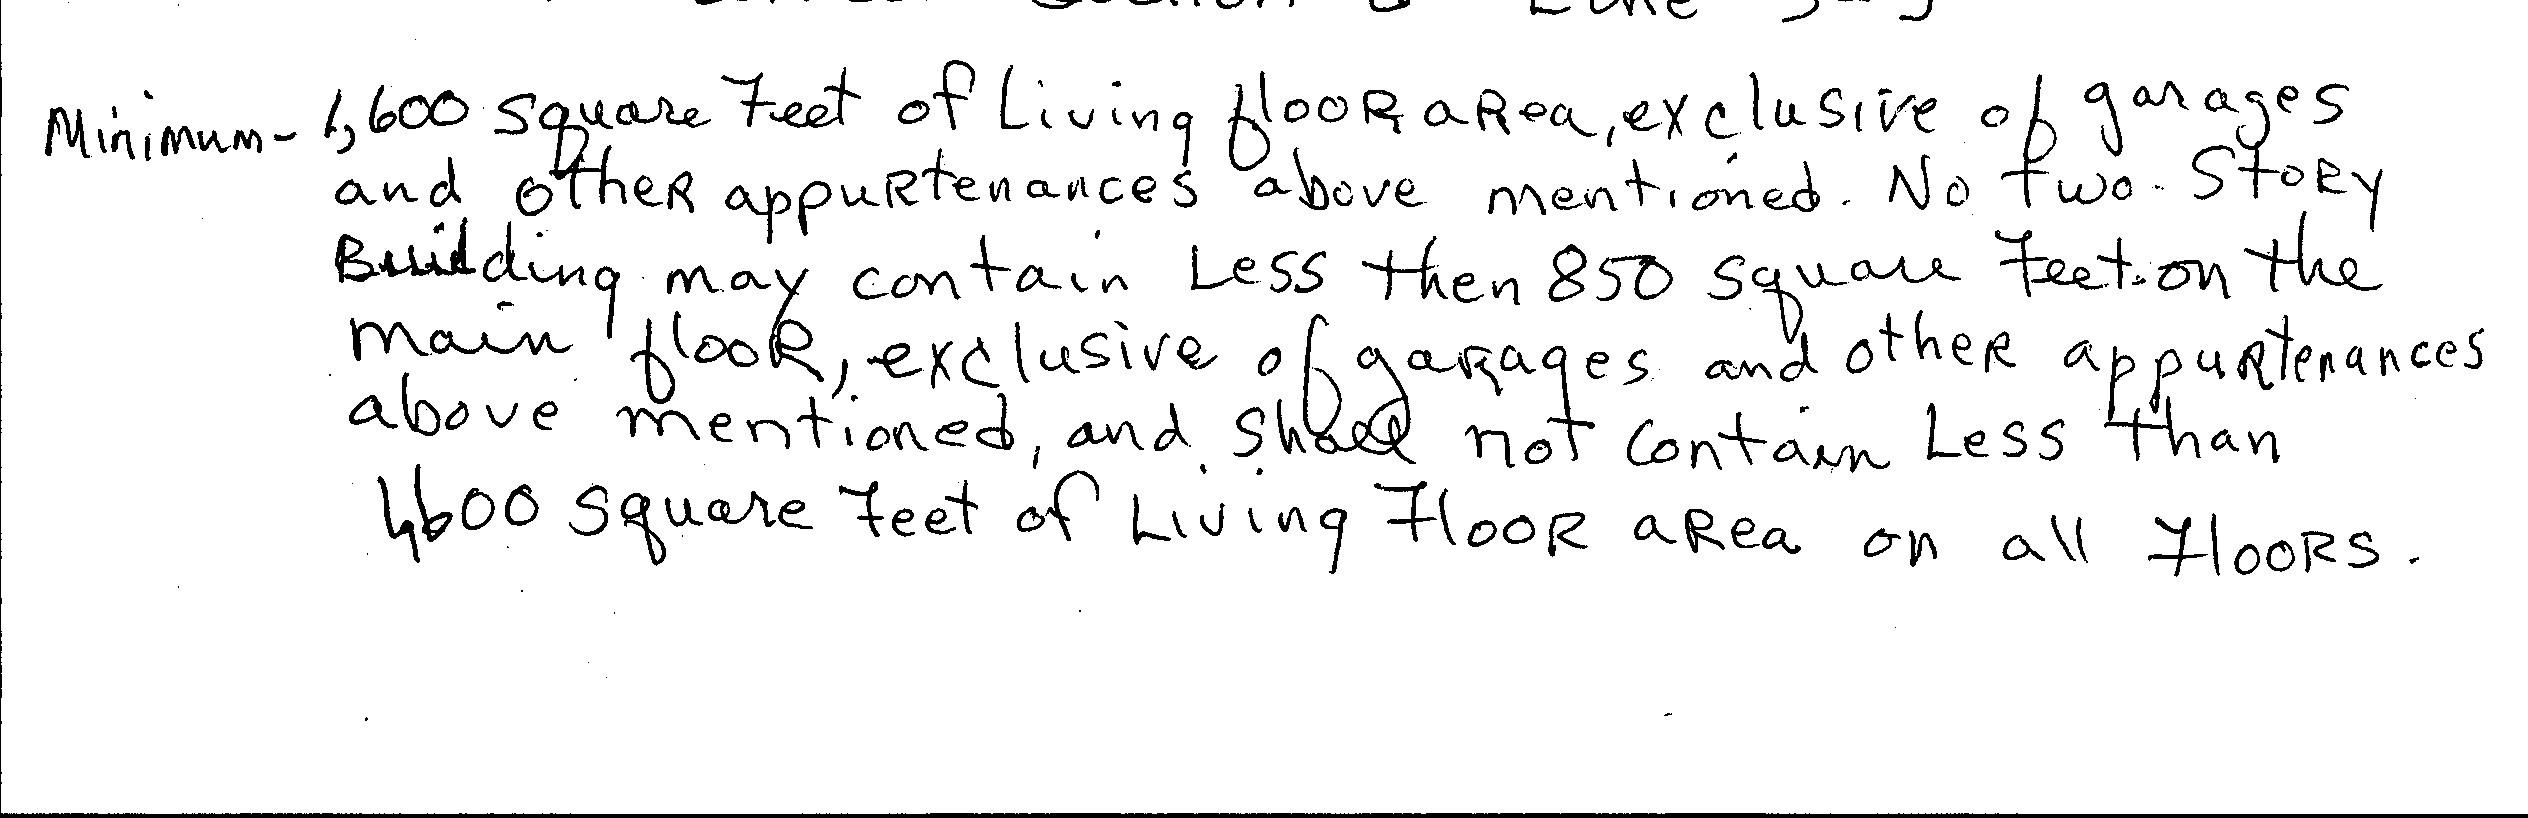 Minimum - 1,600 square Feet of Living flooR aRea, exclusive of garages
and otheR appuRtenances above mentioned. No two-StoRy
Building may contain Less then 850 square Feet on the
main flooR, exclusive of gaRages and otheR appuRtenances
above mentioned, and shall not contain Less than
1,600 square Feet of Living FlooR aRea on all FlooRs.